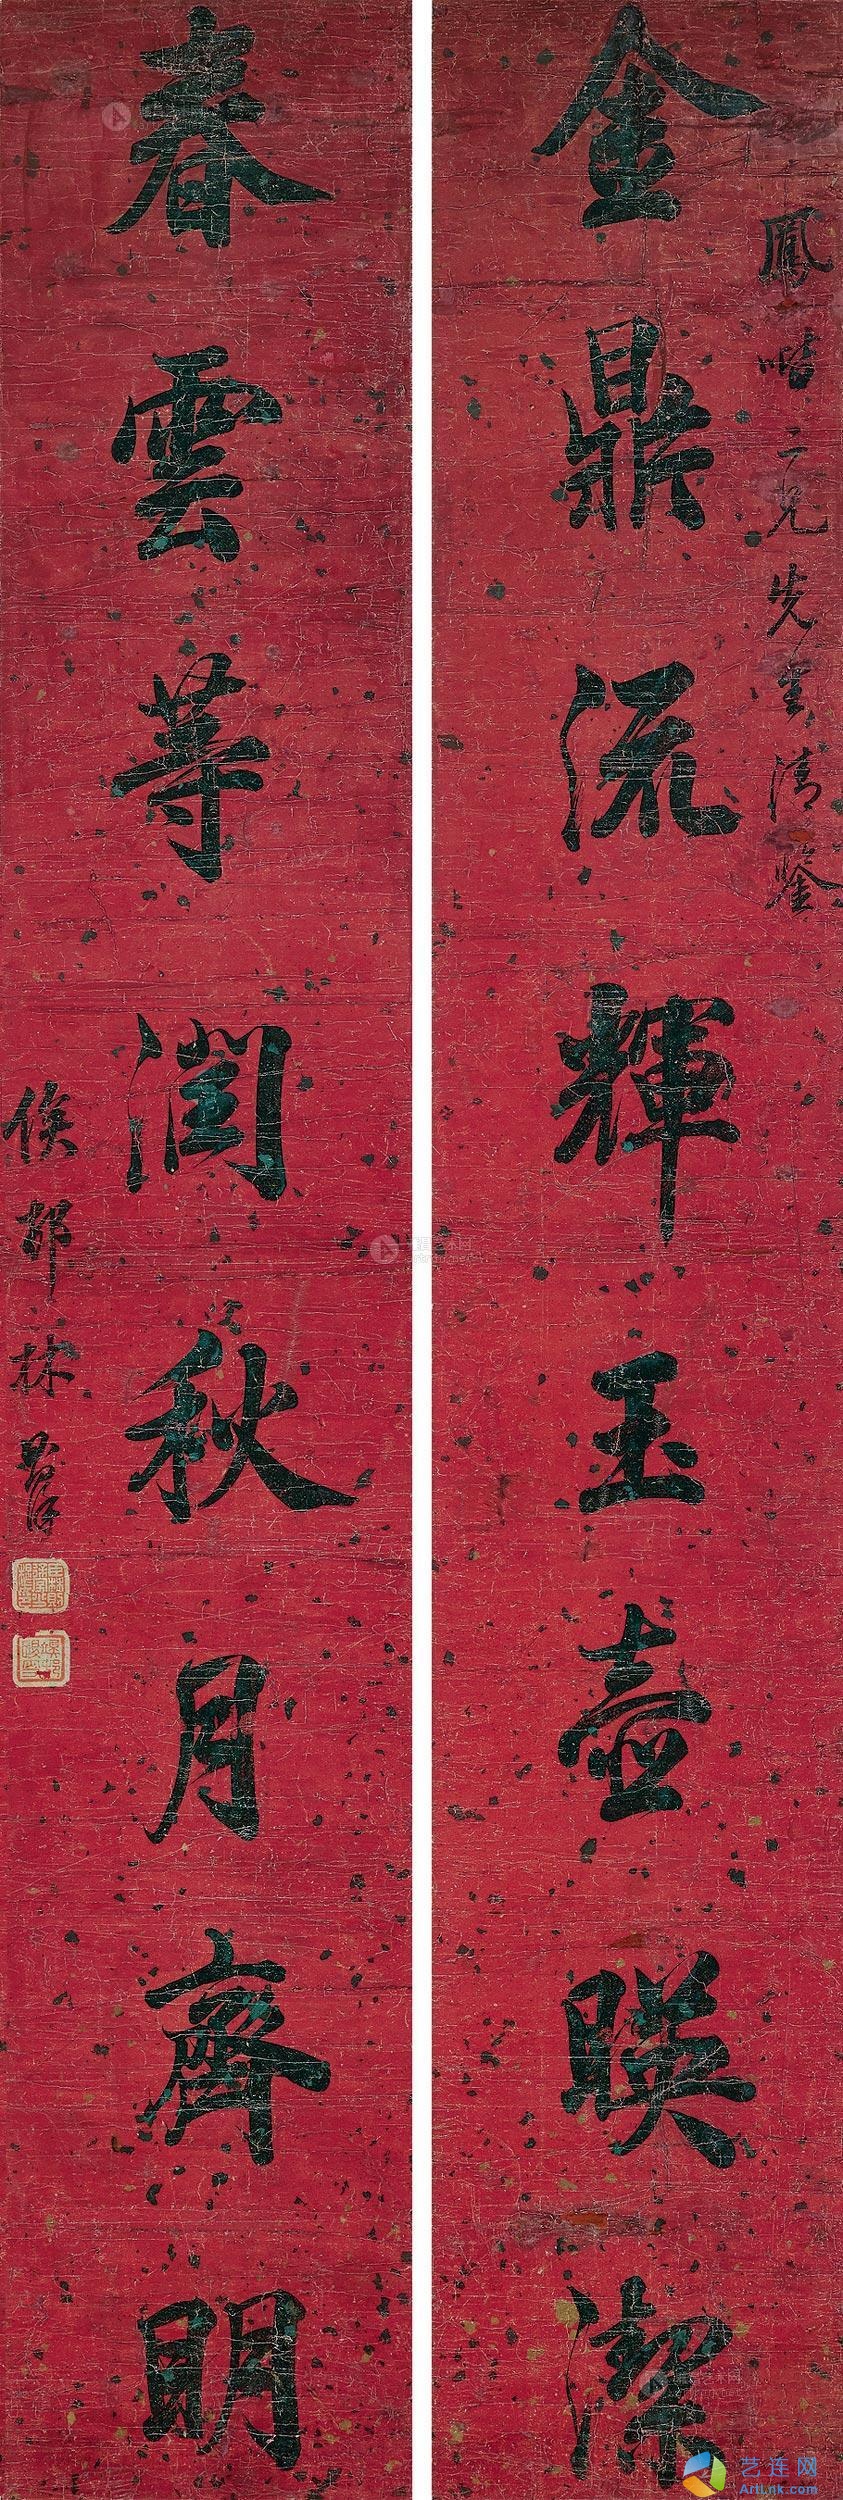 鳳喈二兄先生清鑒
金鼎流輝玉壺暎潔
春雲等潤秋月齊明
侯邨林昌彝
艺连网
ArtLnk.com